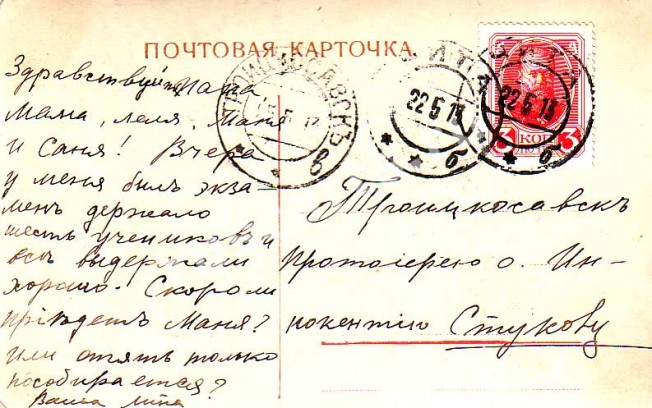 ПОЧТОВАЯ КАРТОЧКА.
Здравствуйте папа
мама, леля, Маня
и Саня! Вчера
у меня былъ экза
менъ держало
шесть учениковъ и
всѣ выдержали
хорошо. Скоро ли
пріѣдетъ Маня?
или опять только
пособирается?
Ваша Лина
ТРОИЦКОСАВСКЪ
в
ЧИТА
22 5 13
б
ЧИТА
22 5 13
б
3 КОП 3
Троицкосавскъ
протоіерею о. Ин-
нокентію Стукову